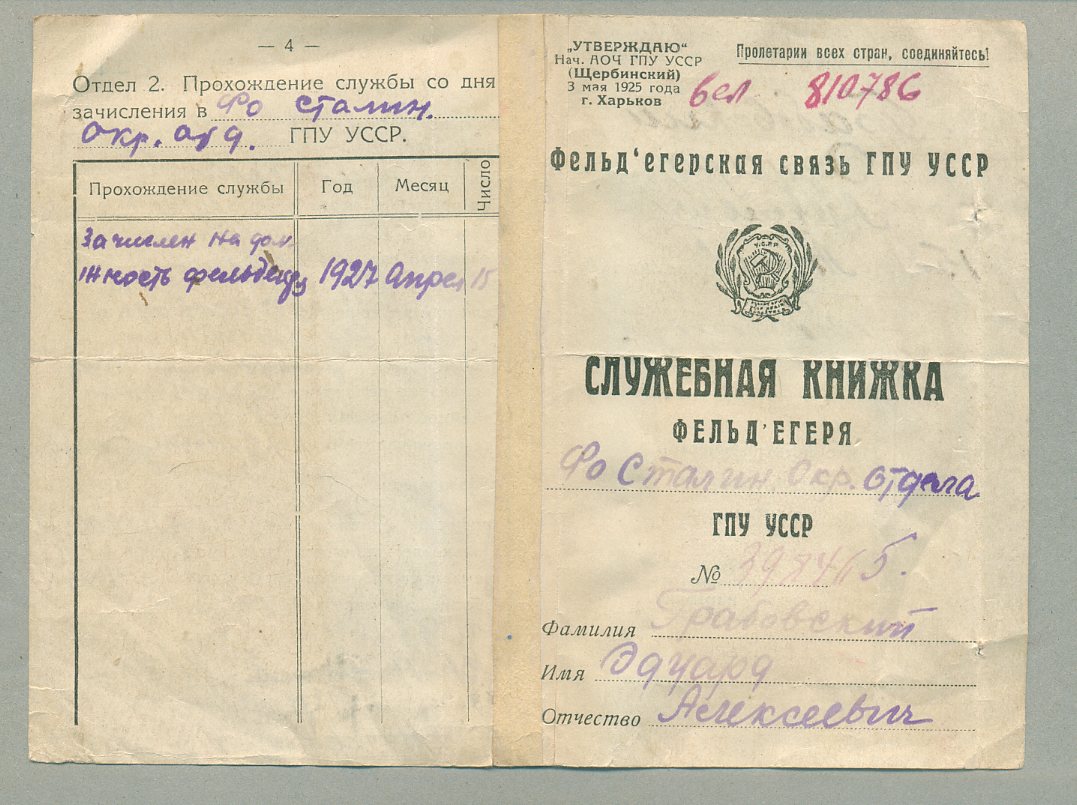 — 4 —
Отдел 2. Прохождение службы со дня
зачисления в Фо Сталин.
Окр. Отд. ГПУ УССР.
Прохождение службы Год Месяц Число
Зачислен на дол
жность фельдегеря 1927 Апрел 15
„УТВЕРЖДАЮ“
Нач. АОЧ ГПУ УССР
(Щербинский)
3 мая 1925 года
г. Харьков
Пролетарии всех стран, соединяйтесь!
бел 810786
Фельд‘егерская связь ГПУ УССР
У.С.Р.Р.
СЛУЖЕБНАЯ КНИЖКА
ФЕЛЬД’ЕГЕРЯ
Фо Сталин. Окр. отдела
ГПУ УССР
№
Фамилия Грабовский
Имя Эдуард
Отчество Алексеевич